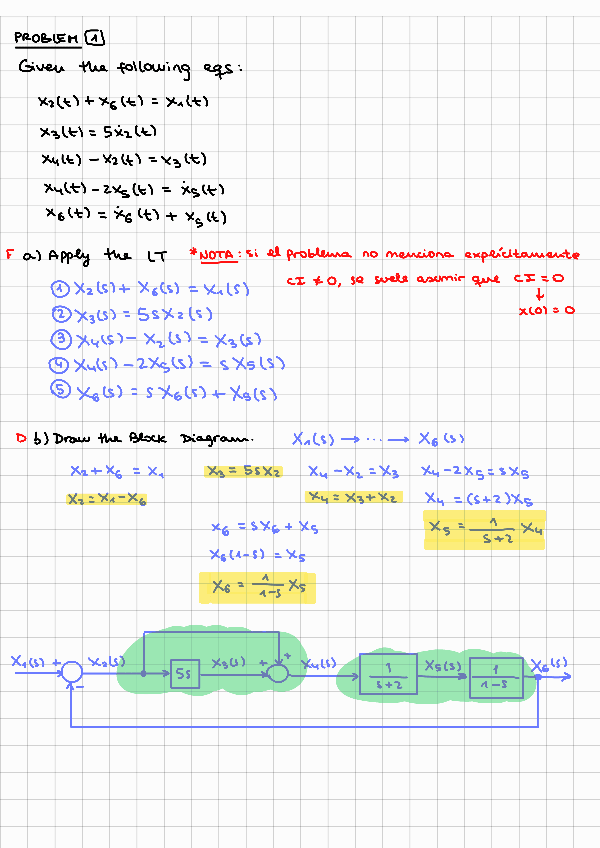 PROBLEM 1
Given the following eqs:
x₂(t) + x₆(t) = x₁(t)
x₃(t) = 5ẋ₂(t)
x₄(t) - x₂(t) = x₃(t)
x₄(t) - 2x₅(t) = ẋ₅(t)
x₆(t) = ẋ₆(t) + x₅(t)
F a) Apply the LT *NOTA: si el problema no menciona explícitamente
CI ≠ 0, se suele asumir que CI = 0
↓
x(0) = 0
① X₂(s) + X₆(s) = X₁(s)
② X₃(s) = 5s X₂(s)
③ X₄(s) - X₂(s) = X₃(s)
④ X₄(s) - 2X₅(s) = s X₅(s)
⑤ X₆(s) = s X₆(s) + X₅(s)
D b) Draw the Block Diagram. X₁(s) → ... → X₆(s)
X₂ + X₆ = X₁ X₃ = 5s X₂ X₄ - X₂ = X₃ X₄ - 2X₅ = sX₅
X₂ = X₁ - X₆ X₄ = X₃ + X₂ X₄ = (s+2)X₅
X₆ = sX₆ + X₅ X₅ = 1/(s+2) X₄
X₆(1-s) = X₅
X₆ = 1/(1-s) X₅
X₁(s) + - X₂(s) 5s X₃(s) + + X₄(s) 1/(s+2) X₅(s) 1/(1-s) X₆(s)